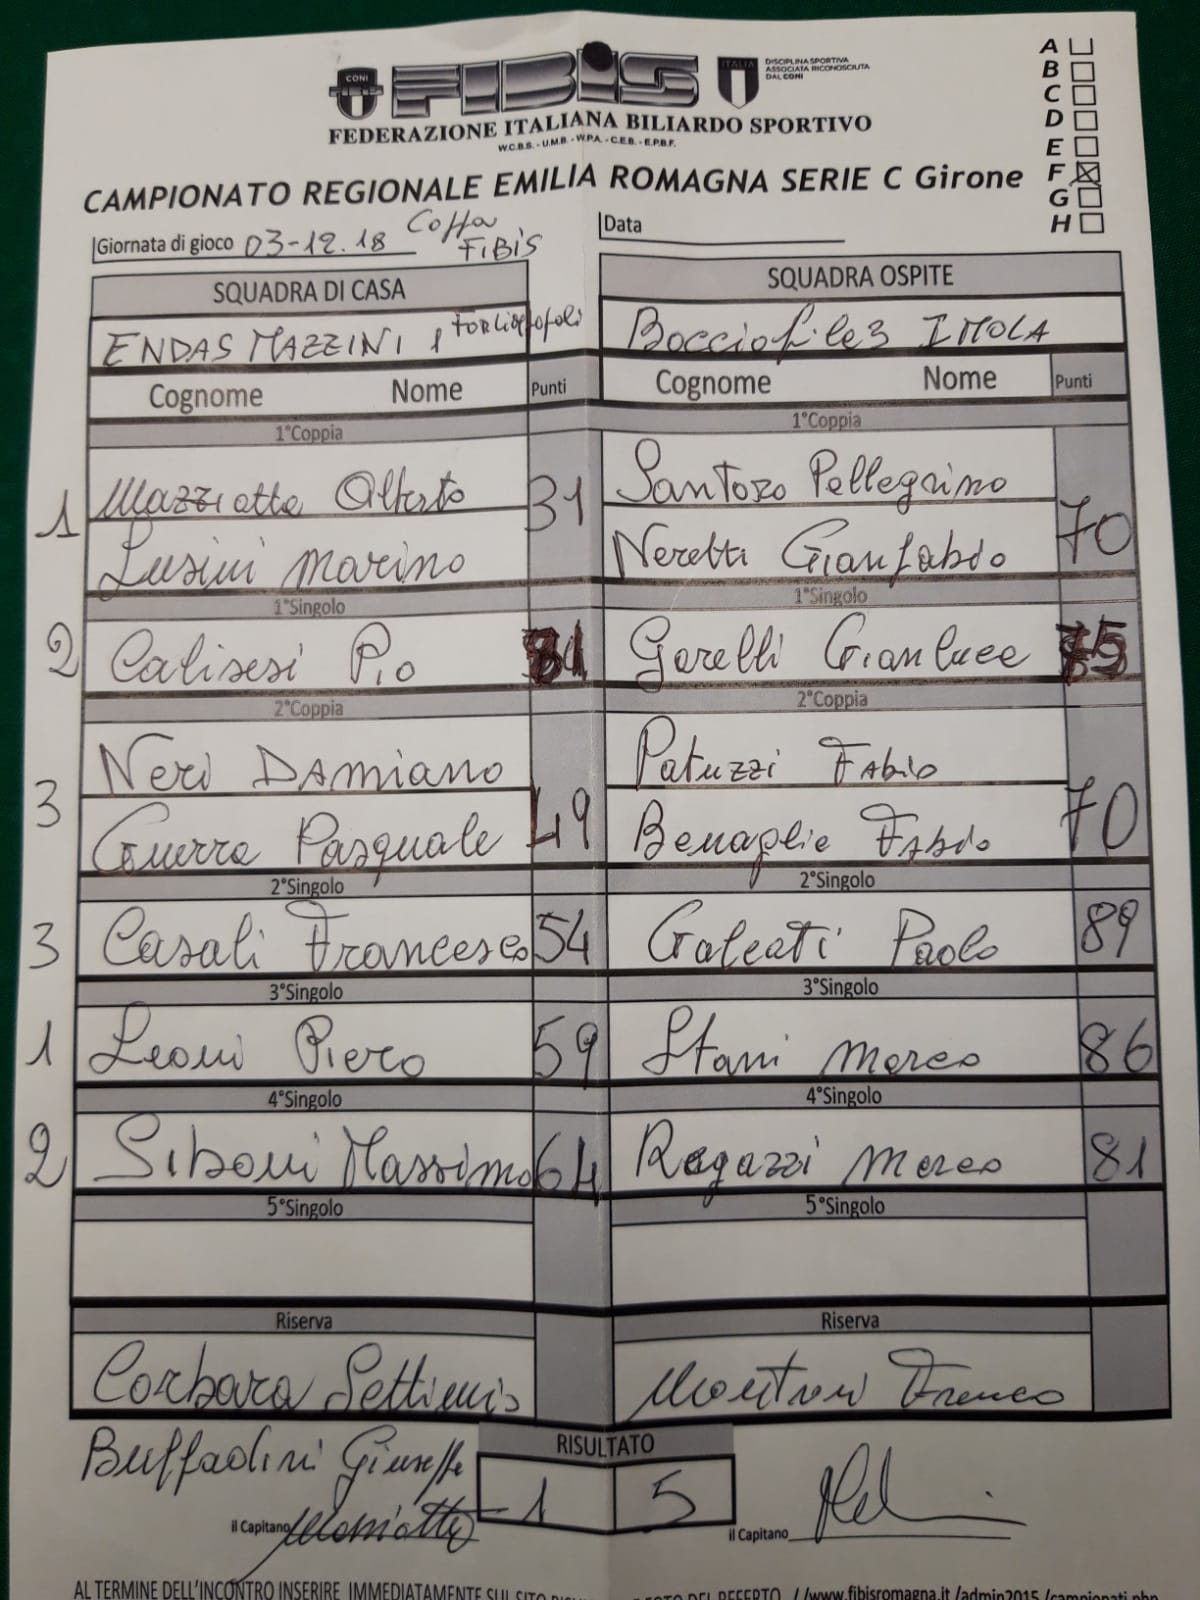 A
B
C
D
E
F
G
H
CONI
FIBIS
ITALIA
DISCIPLINA SPORTIVA
ASSOCIATA RICONOSCIUTA
DAL CONI
FEDERAZIONE ITALIANA BILIARDO SPORTIVO
W.C.B.S. - U.M.B. - W.P.A. - C.E.B. - E.P.B.F.
CAMPIONATO REGIONALE EMILIA ROMAGNA SERIE C Girone
Giornata di gioco 03-12.18 Coppa FIBIS
Data
SQUADRA DI CASA SQUADRA OSPITE
ENDAS MAZZINI 1 Bocciofile3 IMOLA
Cognome Nome Punti Cognome Nome Punti
1°Coppia 1°Coppia
1 Mazziotta Alberto 31 Santoro Pellegrino 70
Lusini Marino Neretti Gianfabio
1°Singolo 1°Singolo
2 Calisesi Pio Garelli Gianluca
2°Coppia 2°Coppia
3 Neri Damiano 49 Patuzzi Fabio 70
Guerra Pasquale Benaglia Fabio
2°Singolo 2°Singolo
3 Casali Francesco 54 Galeati Paolo 89
3°Singolo 3°Singolo
1 Leoni Piero 59 Stani Marco 86
4°Singolo 4°Singolo
2 Siboni Massimo 64 Ragazzi Marco 81
5°Singolo 5°Singolo
Riserva Riserva
Corbara Settimio Franco
Buffadini Giuseppe
RISULTATO
1 5
il Capitano il Capitano
AL TERMINE DELL'INCONTRO INSERIRE IMMEDIATAMENTE SUL SITO DEL REFERTO //www.fibisromagna.it /admin2015 /campionati.php